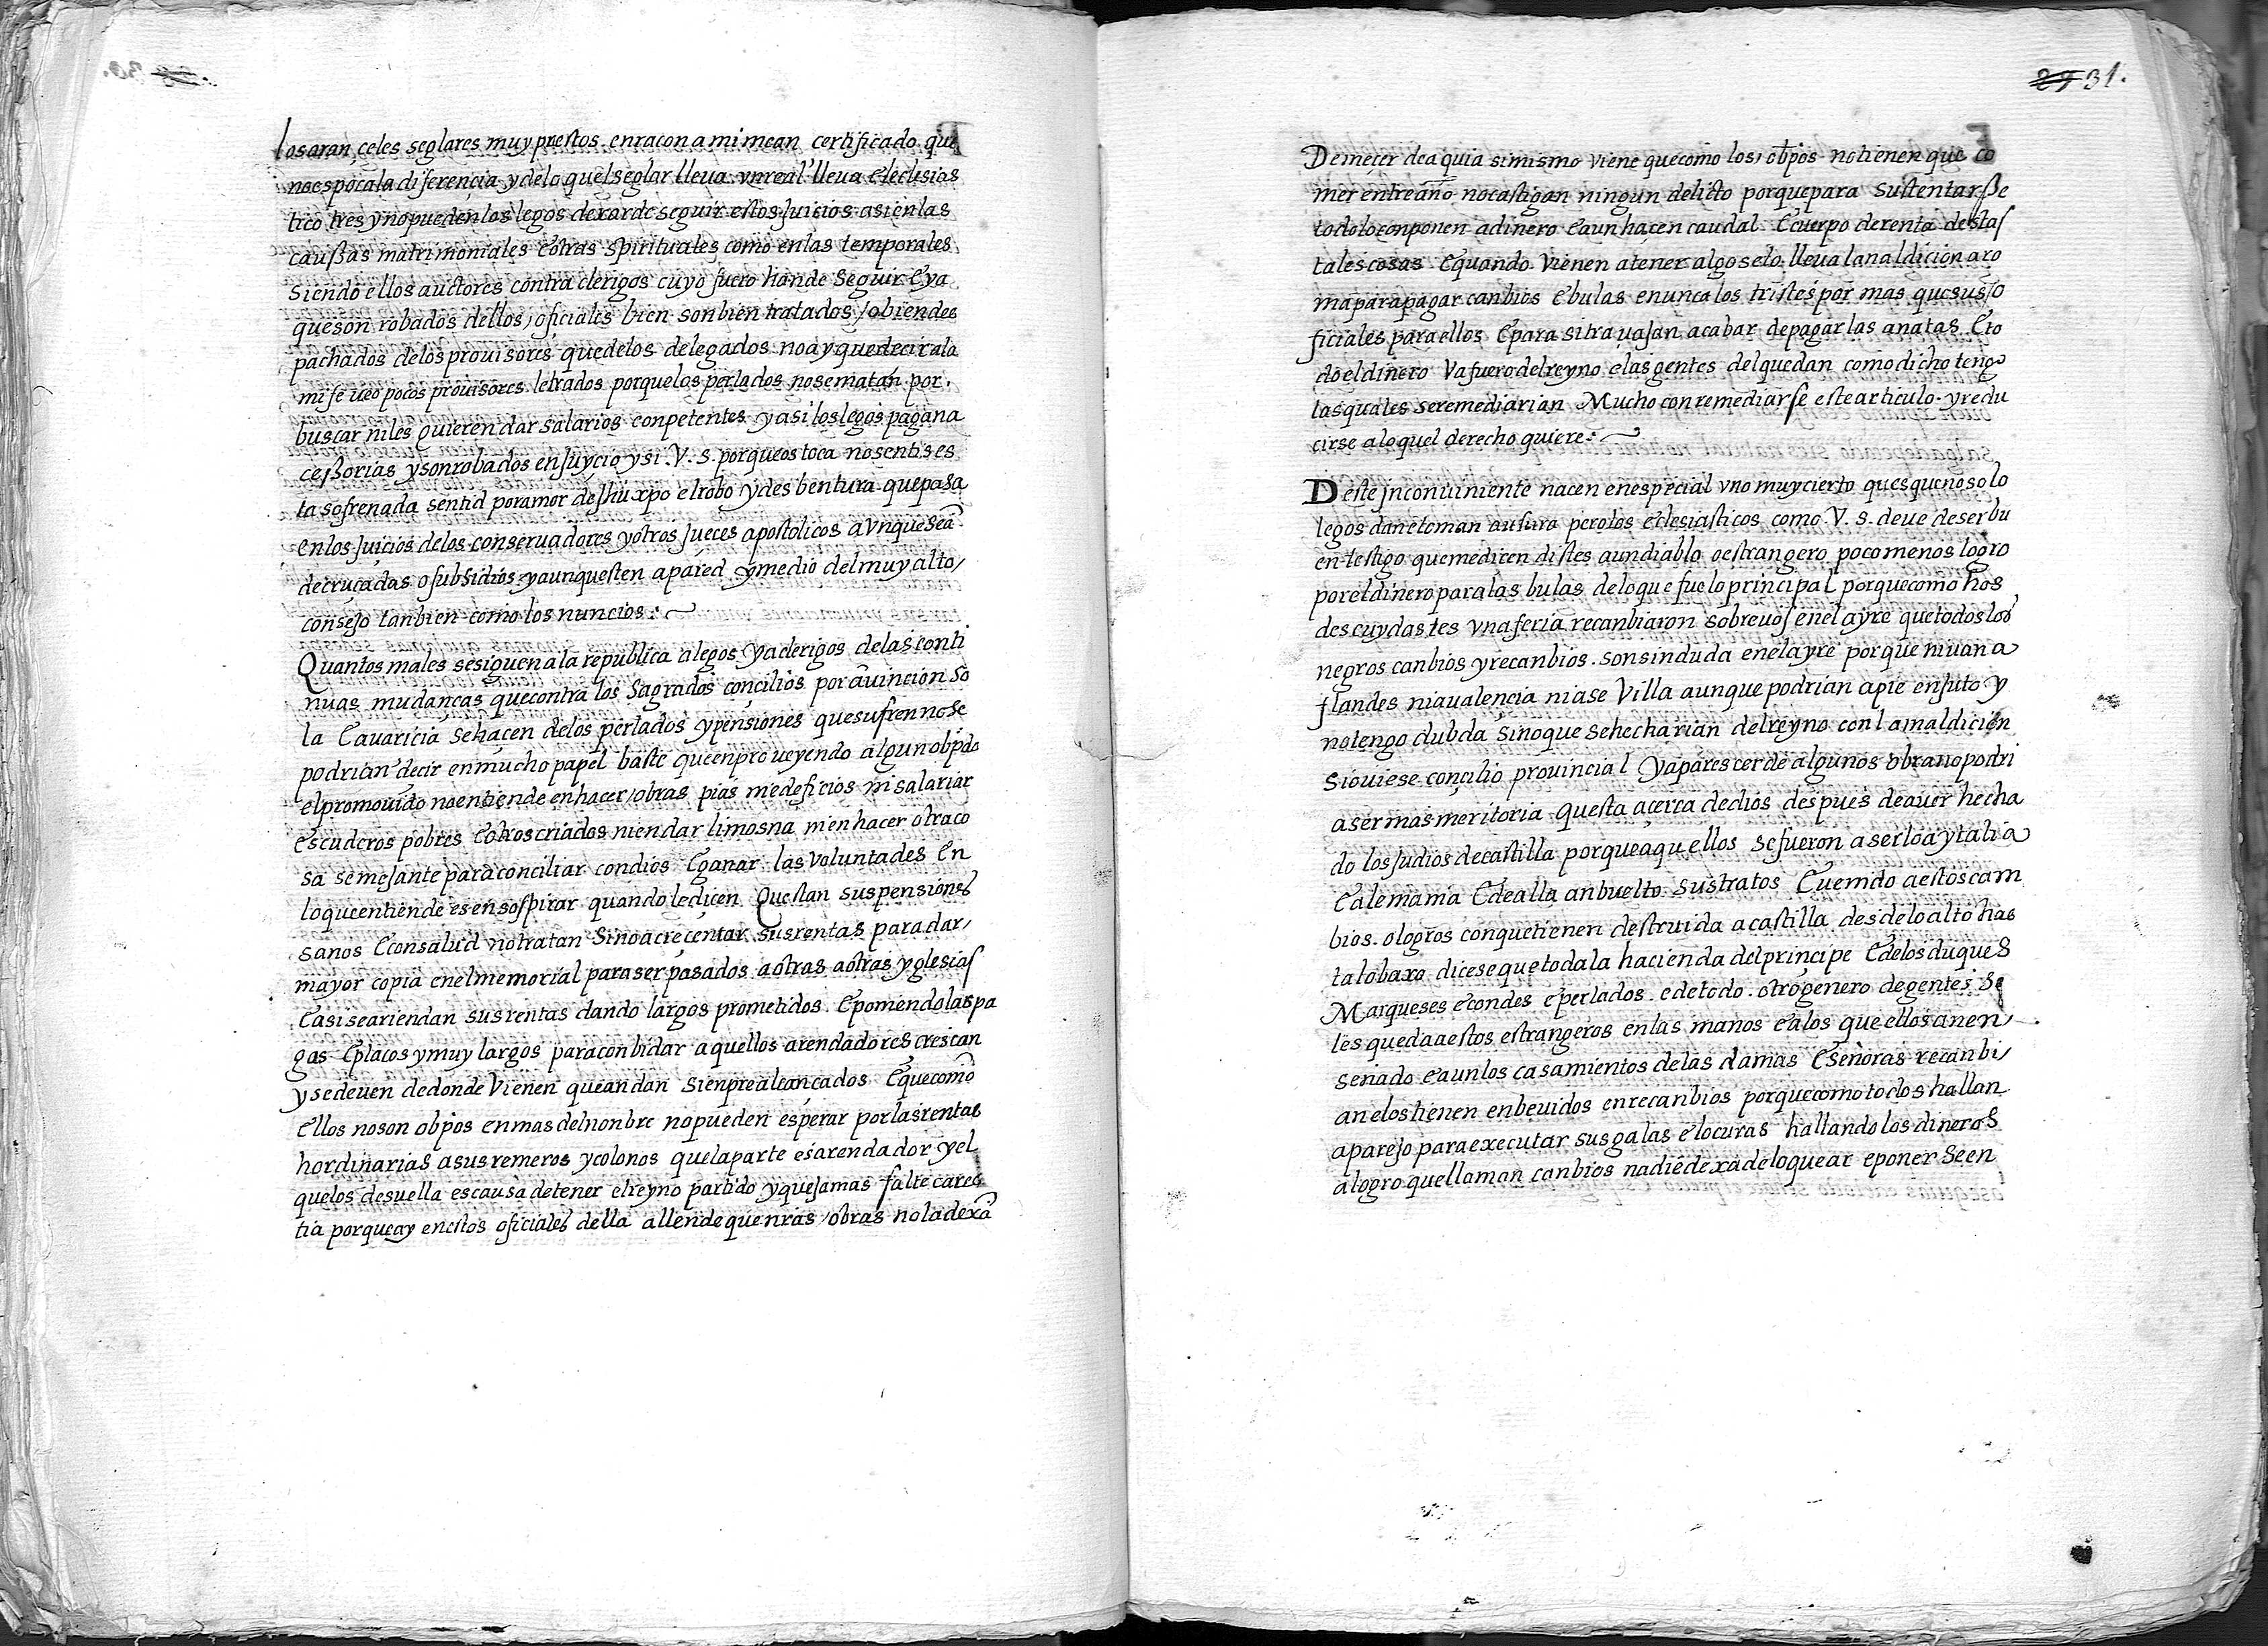 los aran çeles seglares muy prestos. en raçon a mi mean certificado que
no es poca la diferençia y de lo quel seglar lleua vn real lleua el eclesias
tico tres y no pueden los legos dexar de seguir estos Juicios asi en las
caussas matrimoniales e otras spirituales como en las temporales
siendo ellos auctores contra clerigos cuyo fuero han de seguir E ya
que son robados dellos oficiales bien son bien tratados / o bien des
pachados de los prouisores que de los delegados no ay que decir a la
mi fe veo pocos prouisores letrados porque los perlados no se matan por
buscar ni les quieren dar salarios conpetentes y asi los legos pagan a
cessorias y son robados en Juycio y si .V. s. porque os toca no sentis es
ta sofrenada sentid por amor de Jhu xpo el robo y des bentura que pasa
en los Juicios de los conseruadores y otros Jueces apostolicos avnque seã
de cruçadas o subsidios y aunquesten a pared y medio del muy alto /
consejo tanbien como los nuncios :~
Quantos males se siguen a la republica a legos y a clerigos de las conti
nuas mudanças que contra los sagrados conçilios por avincion so
la E avaricia se haçen de los perlados y pensiones que sufren no se
podrian decir en mucho papel baste que en proueyendo algun obpdo
el promouido no entiende en hacer / obras pias ni edeficios ni salariar
escuderos pobres E otros criados ni en dar limosna ni en hacer otra co
sa semejante para conciliar con dios E ganar las voluntades En
lo que entiende es en sospirar quando le dicen Questan sus pensiones
sanos E con salud no tratan sino acreçentar sus rentas para dar /
mayor copia en el memorial para ser pasados a otras a otras yglesias
E asi se ariendan sus rentas dando largos prometidos. E poniendo las pa
gas E placos y muy largos para conbidar a quellos arendadores crescan
y se deuen de donde vienen que andan sienpre alcançados E que como
Ellos no son obpos en mas del nonbre no pueden esperar por las rentas
hordinarias a sus remeros y colonos que la parte es arendador y el
que los desuella es causa de tener el reyno partido y que Jamas falte cares
tia porque ay en estos oficiales della allende que nras / obras no la dexã
29 31.
De meçer de a qui a si mismo viene que como los / obpos no tienen que co
mer entre año no castigan ningun delicto porque para sustentarsse
todo lo conponen a dinero E aun haçen caudal E cuerpo de renta destas
tales cosas E quando vienen a tener algo se lo lleua la naldicion a ro
ma para pagar canbios E bulas e nunca los tristes por mas que sus / o
ficiales para ellos E para si trauajan acabar de pagar las anatas E to
do el dinero va fuero del reyno e las gentes del quedan como dicho tengo
las quales se remediarian Mucho con remediarse este articulo y redu
cirse a lo quel derecho quiere :~
Deste Jnconuiniente nacen en especial vno muy cierto ques que no solo
legos dan e toman a usura pero los eclesiasticos como .V. s. deue de ser bu
en testigo que me dicen distes a un diablo o estrangero poco menos logro
por el dinero para las bulas de lo que fue lo principal porque como hos
descuydastes vna feria recanbiaron sobre uos en el ayre que todos los
negros canbios y recanbios. son sin duda en el ayre porque ni uan a
flandes ni a valencia ni a se villa aunque podrian a pie enJuto y
no tengo dubda sino que se hecharian del reyno con la maldicion
si ouiese conçilio prouincial y a paresçer de algunos obra no podri
a ser mas meritoria questa açerca de dios despues de auer hecha
do los Judios de castilla porque aquellos se fueron a serlo a ytalia
E alemania E de alla an buelto sus tratos E uenido a estos cam
bios. o logros con que tienen destruida a castilla desde lo alto has
ta lo baxo dicese que toda la hacienda del principe E de los duques
Marqueses e condes e perlados. e de todo. otro genero de gentes se
les queda a estos estrangeros en las manos e a los que ellos an en /
señado e aun los casamientos de las damas E señoras recanbi /
an e los tienen enbeuidos en recanbios porque como todos hallan
aparejo para executar sus galas e locuras hallando los dineros
a logro que llaman canbios nadie dexa de loquear e poner se en